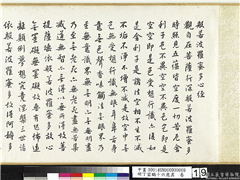 般若波羅蜜多心經
觀自在菩薩行深般若波羅蜜多
時照見五蘊皆空度一切苦厄舍
利子色不異空空不異色色即是
空空即是色受想行識亦復如
是舍利子是諸法空相不生不滅
不垢不淨不增不減是故空中
無色無受想行識無眼耳鼻舌
身意無色聲香味觸法無眼界
乃至無意識界無無明亦無無明盡
乃至無老死亦無老死盡無苦集
滅道無智亦無得以無所得故菩
提薩埵依般若波羅蜜多故心
無罣礙無罣礙故無有恐怖遠離
顛倒夢想究竟涅槃三世諸佛
依般若波羅蜜多故得阿耨多
19